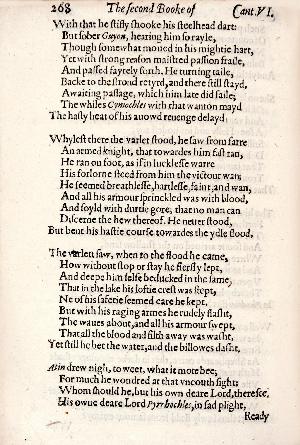 268 The second Booke of Cant. VI.
With that he stifly shooke his steelhead dart:
But sober Guyon, hearing him so rayle,
Though somewhat moued in his mightie hart,
Yet with strong reason maistred passion fraile,
And passed fayrely forth. He turning taile,
Backe to the strond retyrd, and there still stayd,
Awaiting passage, which him late did faile;
The whiles Cymochles with that wanton mayd
The hasty heat of his auowd reuenge delayd.
Whylest there the varlet stood, he saw from farre
An armed knight, that towardes him fast ran,
He ran on foot, as if in lucklesse warre
His forlorne steed from him the victour wan;
He seemed breathlesse, hartlesse, faint, and wan,
And all his armour sprinckled was with blood,
And soyld with durtie gore, that no man can
Discerne the hew thereof. He neuer stood,
But bent his hastie course towardes the ydle flood.
The varlett saw, when to the flood he came,
How without stop or stay he fiersly lept,
And deepe him selfe beducked in the same,
That in the lake his loftie crest was steept,
Ne of his safetie seemed care he kept,
But with his raging armes he rudely flasht,
The waues about, and all his armour swept,
That all the blood and filth away was washt,
Yet still he bet the water, and the billowes dasht.
Atin drew nigh, to weet, what it mote bee;
For much he wondred at that vncouth sight;
Whom should he, but his own deare Lord, there see,
His owne deare Lord Pyrrhochles, in sad plight,
Ready